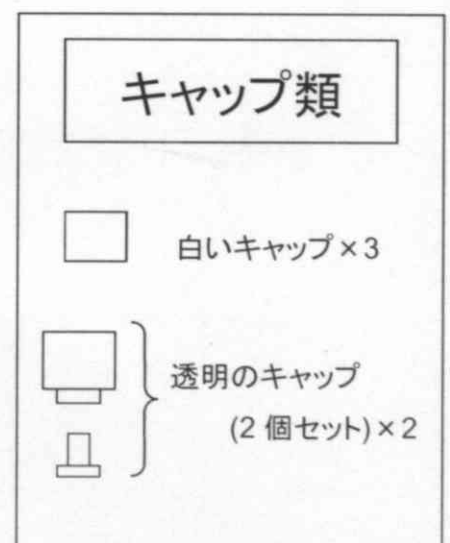 キャップ類
白いキャップ×3
透明のキャップ
(2個セット)×2